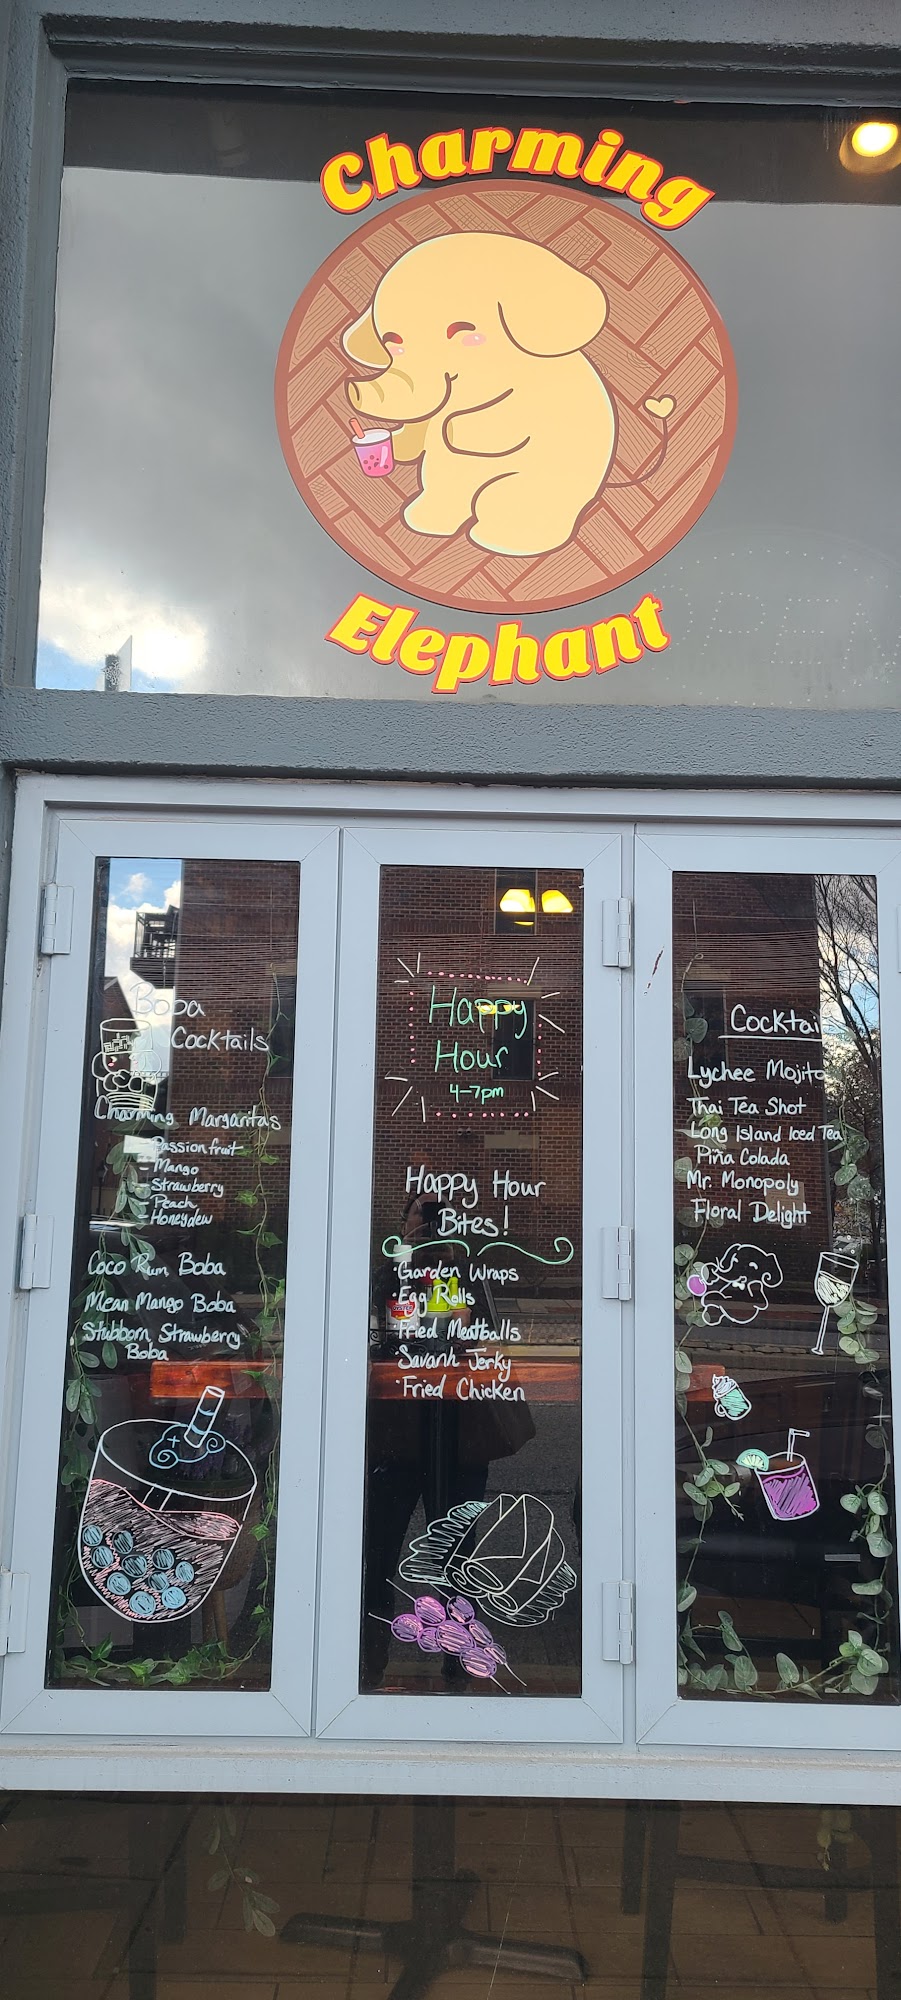 Charming
Elephant
Boba
Cocktails
Charming Margaritas
- Passion fruit
- Mango
- Strawberry
- Peach
- Honeydew
Coco Rum Boba
Mean Mango Boba
Stubborn Strawberry
Boba
Happy
Hour
4-7pm
Happy Hour
Bites!
• Garden Wraps
• Egg Rolls
• Fried Meatballs
Savanh Jerky
• Fried Chicken
Cocktai
Lychee Mojito
Thai Tea Shot
Long Island Iced Tea
Piña Colada
Mr. Monopoly
Floral Delight